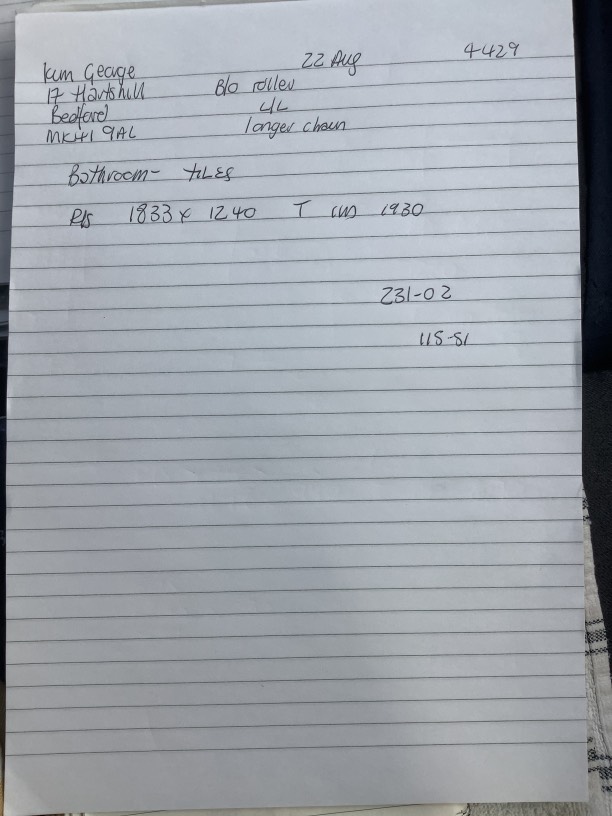 Kim George 22 Aug 4429
17 Hartshill B/o roller
Bedford U/L
MK41 9AL longer chain
Bathroom - TILES
R/S 1833 x 1240 T 1930
231-02
115-51